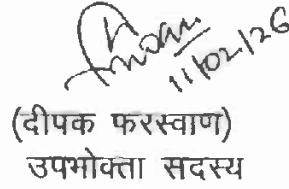 11/02/26
(दीपक फरस्वाण)
उपभोक्ता सदस्य